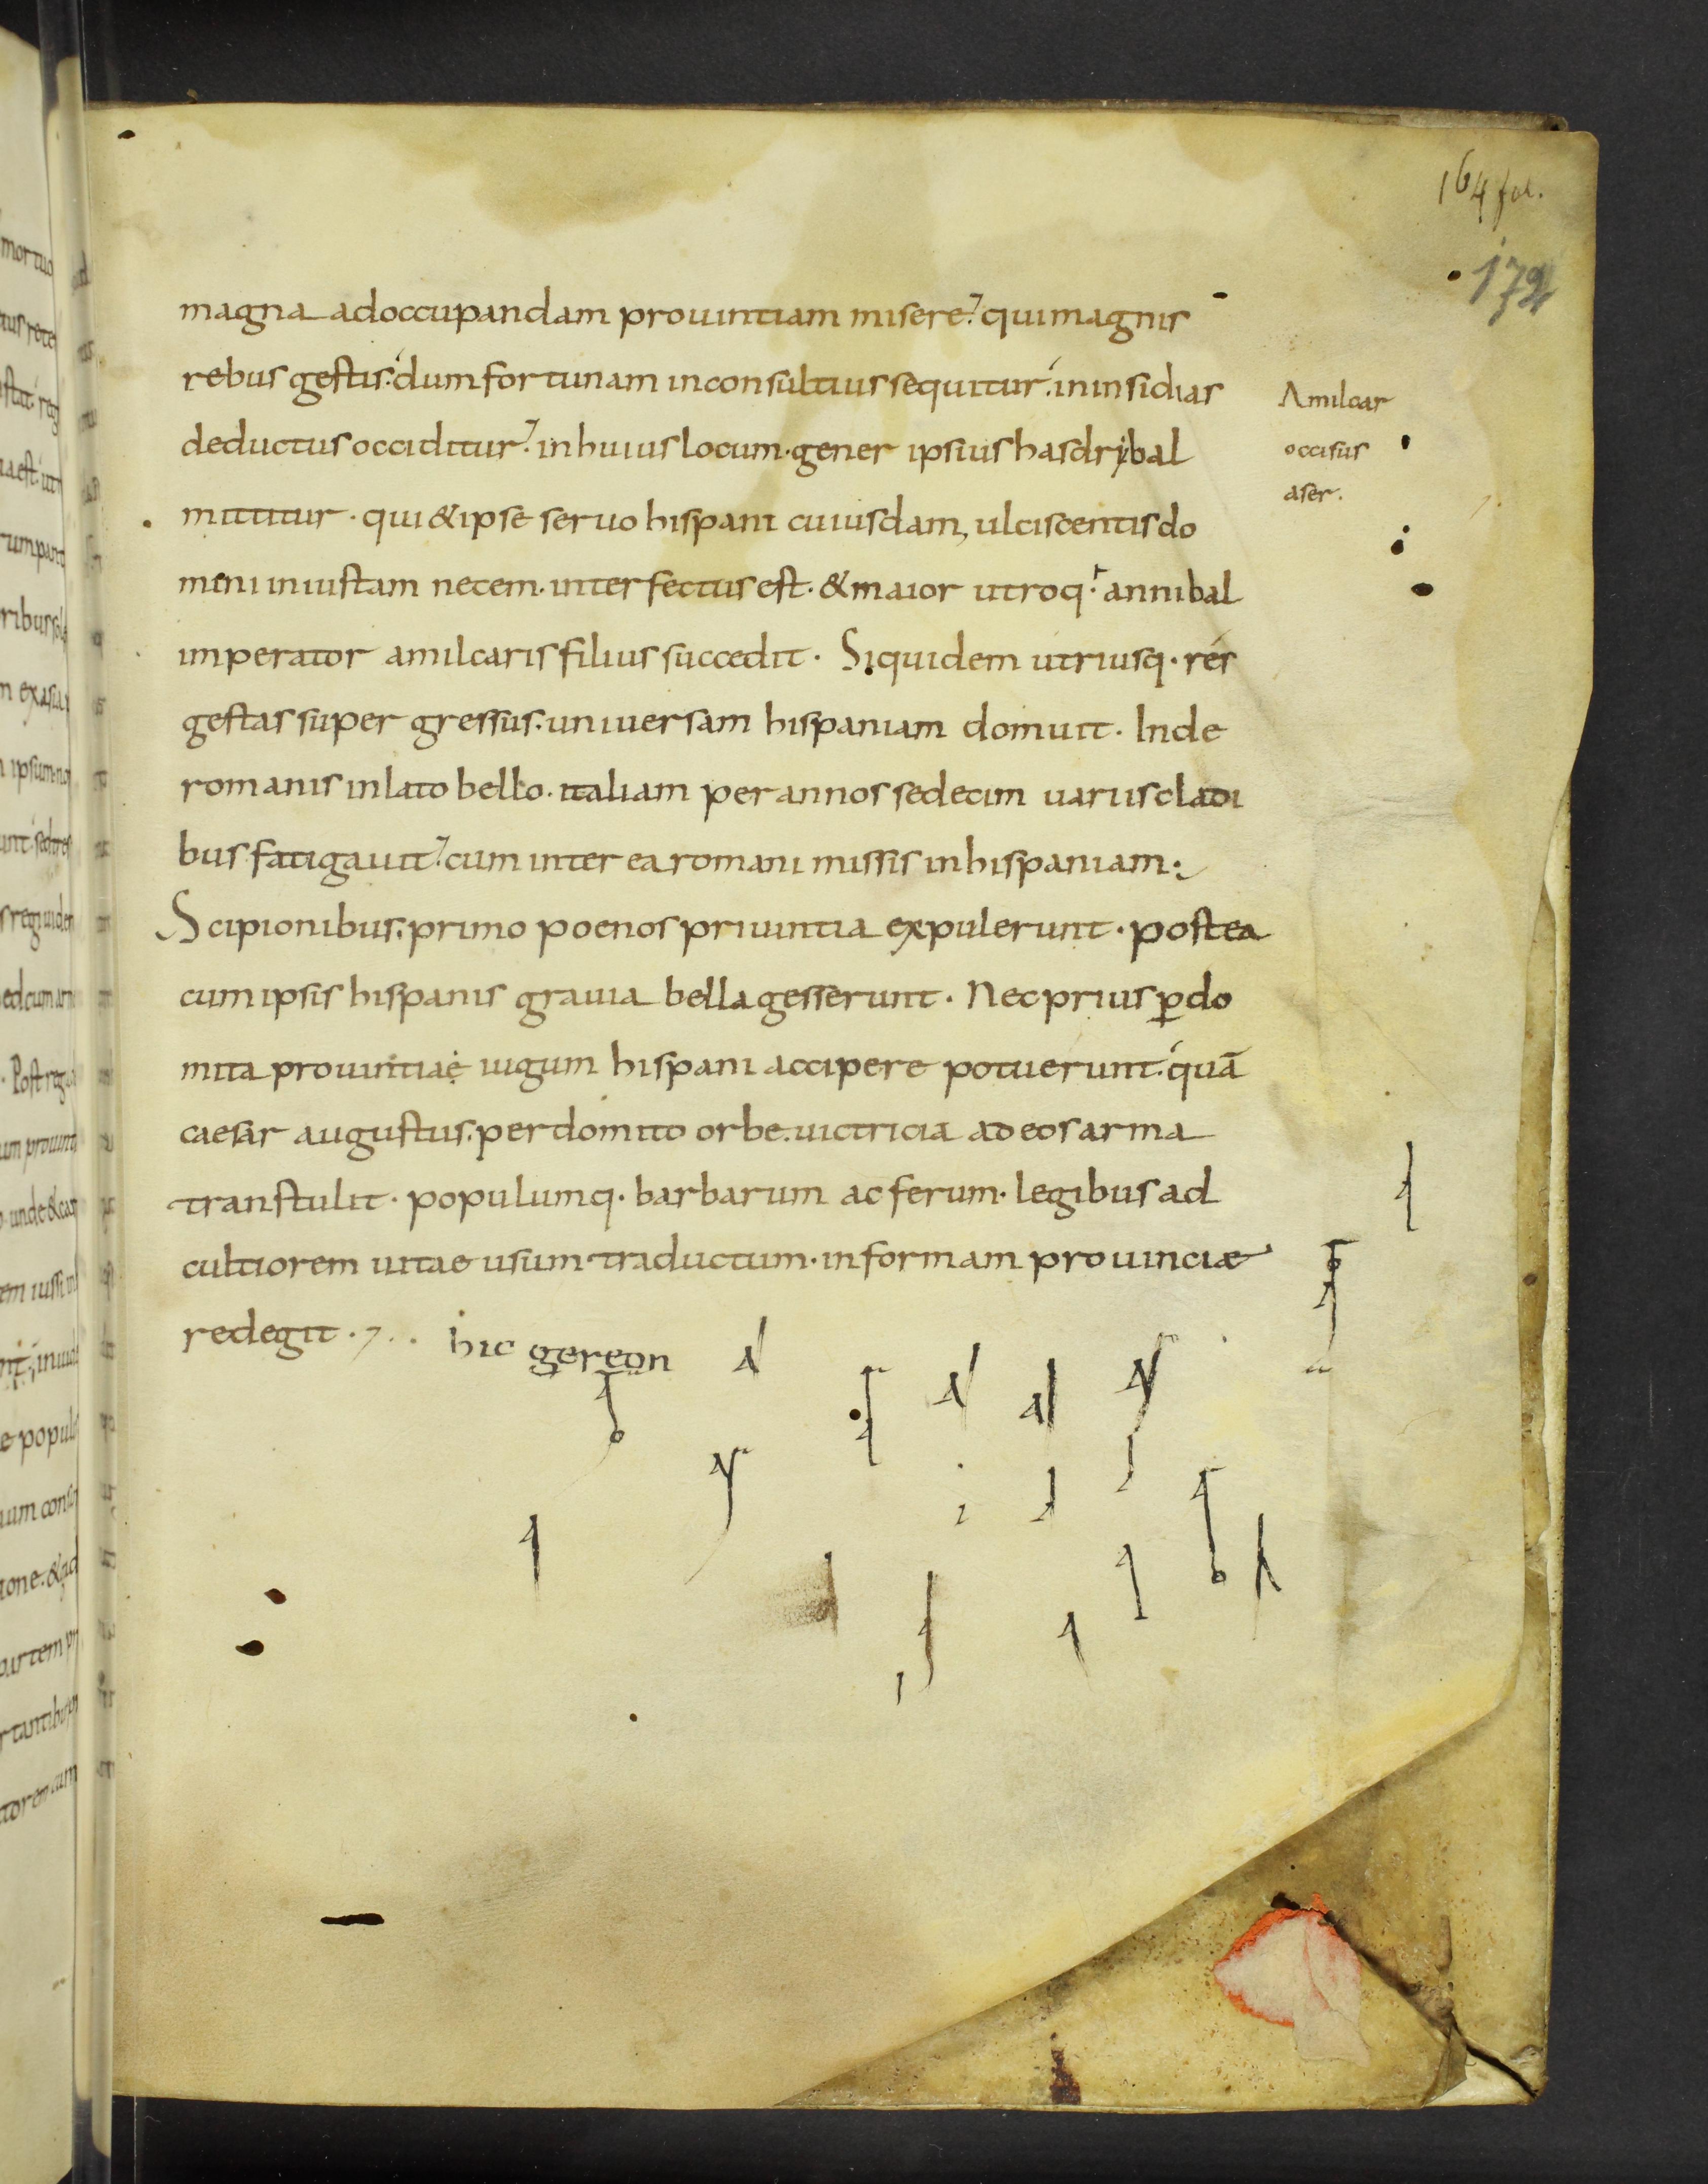 164 fol.
172
magna ad occupandam prouintiam misere. qui magnis
rebus gestis. dum fortunam inconsultius sequitur. in insidias
deductus occiditur. in huius locum. gener ipsius hasdrybal
mittitur. qui & ipse seruo hispani cuiusdam, ulciscentis do
mini iniustam necem. interfectus est. & maior utroq. annibal
imperator amilcaris filius succedit. Siquidem utriusq. rés
gestas super gressus. uniuersam hispaniam domuit. Inde
romanis inlato bello. italiam per annos sedecim uariis cladi
bus fatigauit. cum inter ea romani missis in hispaniam.
Scipionibus. primo poenos priuintia expulerunt. postea
cum ipsis hispanis grauia bella gesserunt. Nec prius ꝑdo
mita prouintiae iugum hispani accipere potuerunt. quā
caesar augustus. perdomito orbe. uictricia ad eos arma
transtulit. populumq. barbarum ac ferum. legibus ad
cultiorem uitae usum traductum. in formam prouinciæ
redegit. hic gereon
Amilcar
occisus
aser.